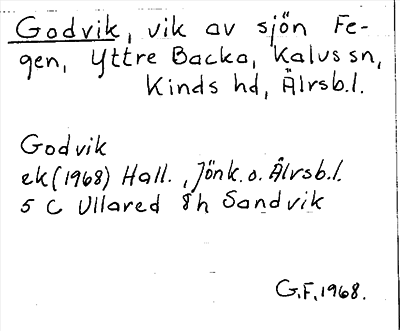 Godvik, vik av sjön Fe-
gen, Yttre Backa, Kalvs sn,
Kinds hd, Älvsb.l.
Godvik
ek (1968) Hall., Jönk. o. Älvsb.l.
5 C Ullared 8h Sandvik
G.F. 1968.